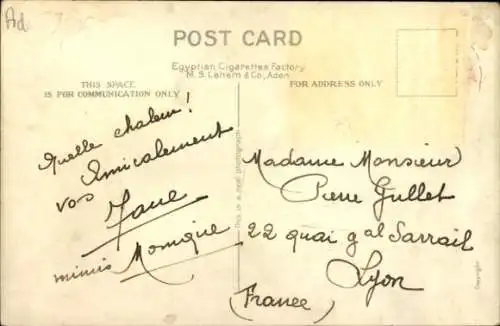 Ad
POST CARD
Egyptian Cigarettes Factory
M. S. Lehem & Co, Aden
THIS SPACE
IS FOR COMMUNICATION ONLY
FOR ADDRESS ONLY
Quelle chaleur!
Amicalement
vos
Jane
mimis Monique
This is a real photograph
Madame Monsieur
Pierre Gullet
22 quai gal Sarrail
Lyon
(France)
Copyright